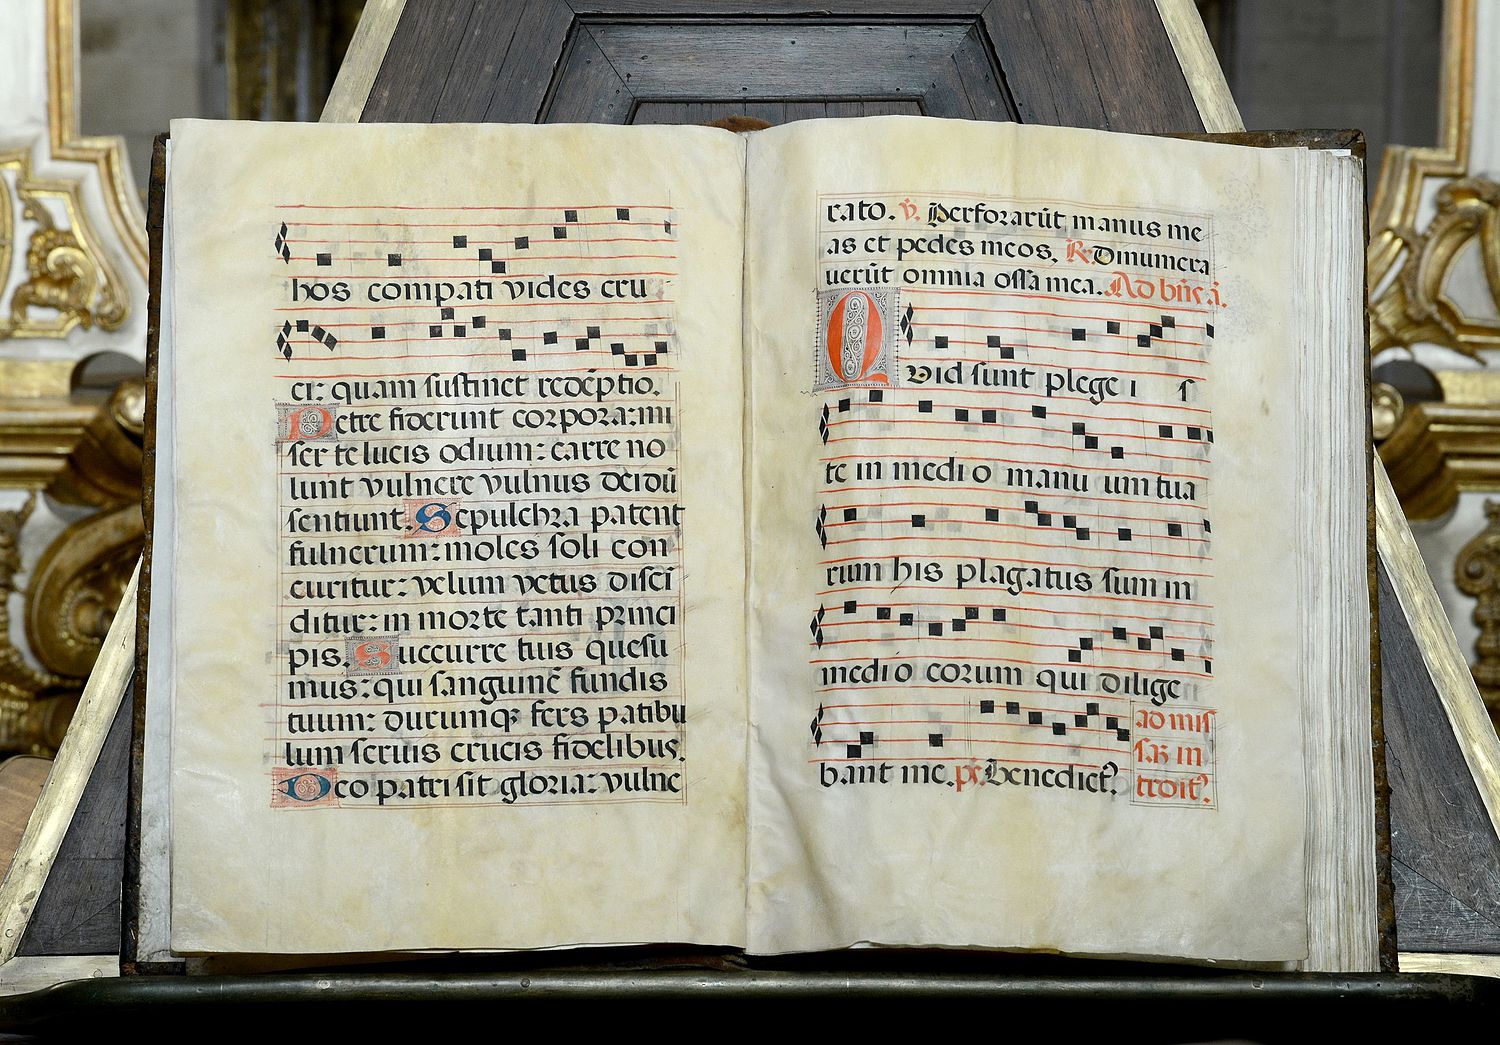 hos compati vides cru
ci: quam sustinet redēptio.
Petre fiderunt corpora: mi
ser te lucis odium: carre no
lunt vulnere vulnus deidū
sentiunt. Sepulchra patent
fulnerum: moles soli con
curitur: velum vetus disci
ditur: in morte tanti princi
pis. Succurre tuis quesu
mus: qui sanguinē fundis
tuum: durumq; fers patibu
lum seruis crucis fidelibus.
Deo patri sit gloria: vulne
rato. ℣. Perforarūt manus me
as et pedes meos. ℟. Dinumera
uerūt omnia ossa mea. Ad bn̄s ā.
Quid sunt plege i s
te in medi o manu um tua
rum his plagatus sum in
medi o eorum qui dilige
bant me. ps. Benedict9
ad mis
sa3 in
troit9.